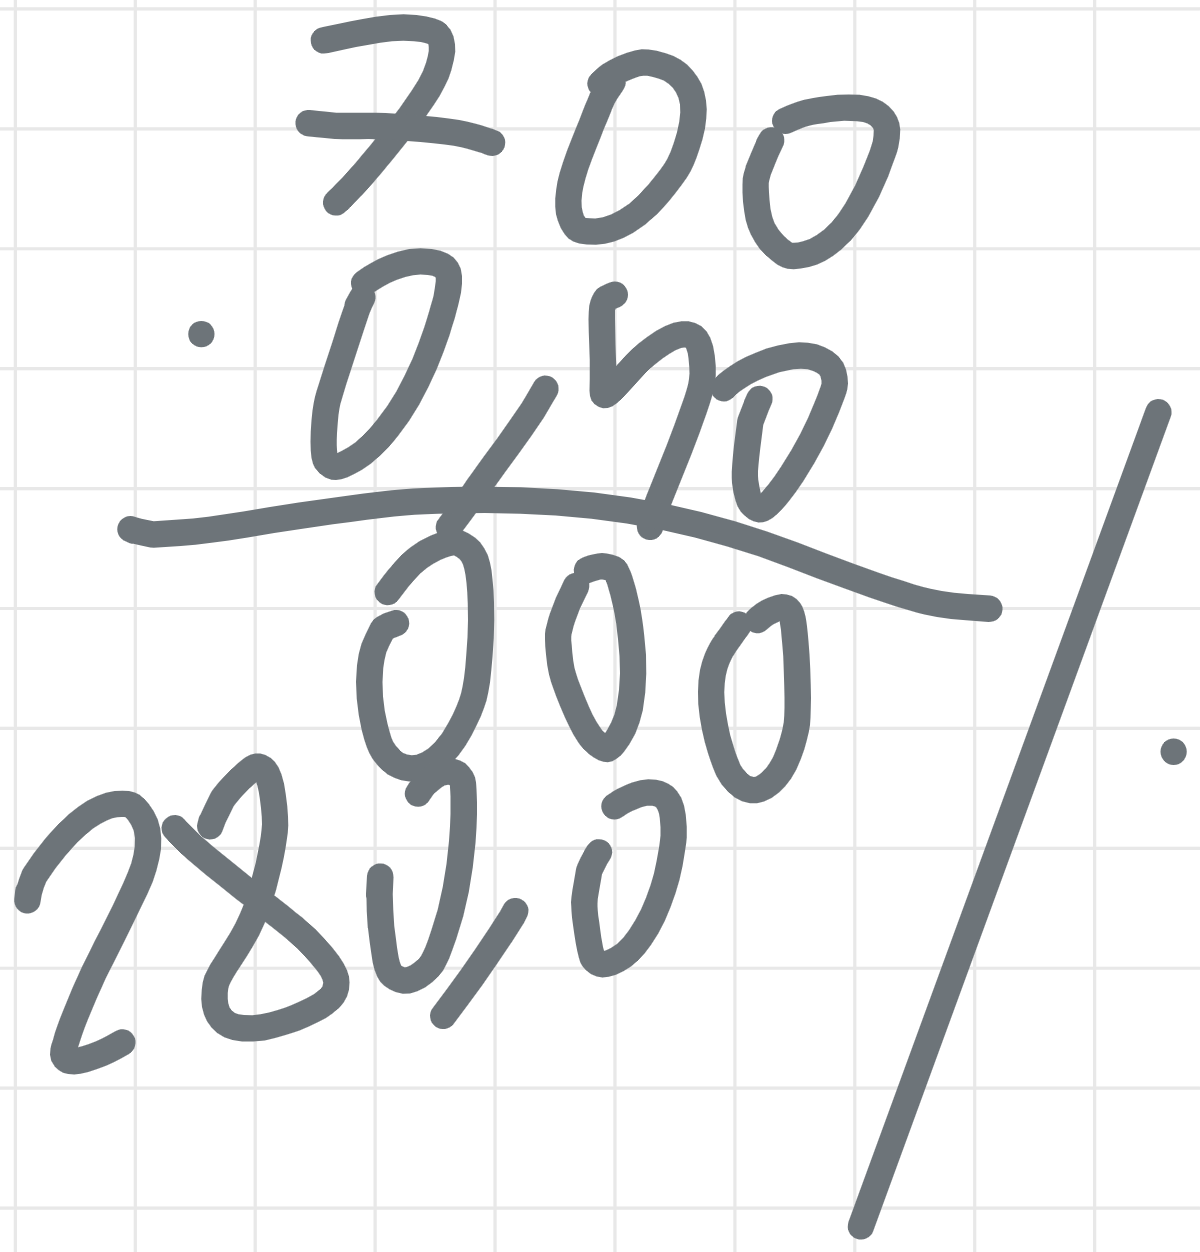 700
· 0,40
000
280,0